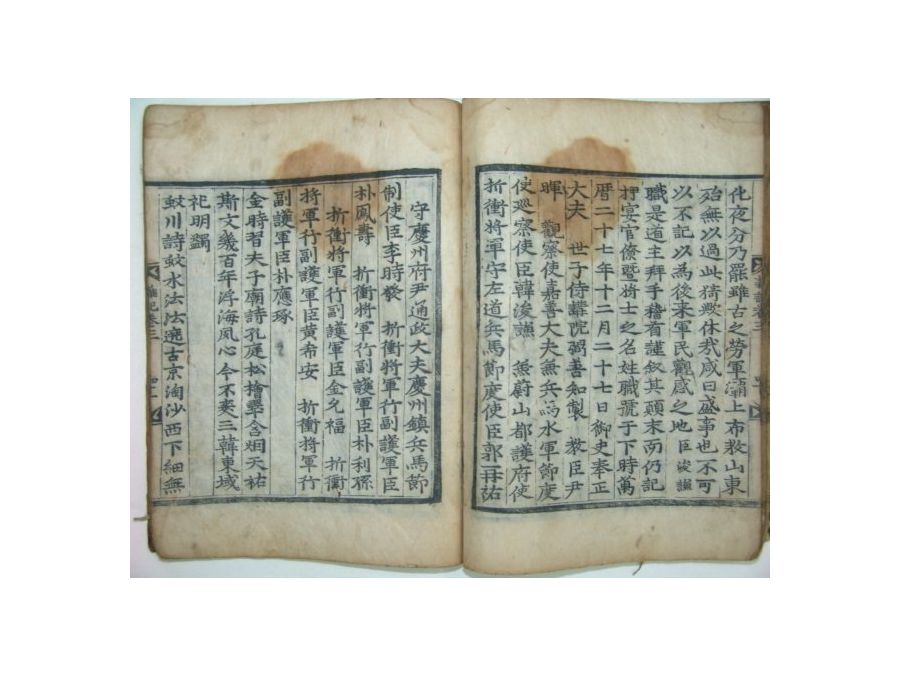 化夜分乃罷雖古之勞軍灞上布敎山東
殆無以過此猗歟休哉咸曰盛事也不可
以不記以為後来軍民觀感之地臣浚謙
職是道主拜手稽首謹叙其顚末而仍記
押宴官僚曁將士之名姓職號于下時萬
曆二十七年十二月二十七日御史奉正
大夫 世子侍講院弼善知製 教臣尹
暉 觀察使嘉善大夫兼兵馬水軍節度
使廵察使臣韓浚謙 兼蔚山都護府使
折衝將軍守左道兵馬節度使臣郭再祐
守慶州府尹通政大夫慶州鎮兵馬節
制使臣李時發 折衝將軍行副護軍臣
朴鳳壽 折衝將軍行副護軍臣朴利孫
折衝將軍行副護軍臣金允福 折衝
將軍行副護軍臣黄希安 折衝將軍行
副護軍臣朴應琢
金時習夫子廟詩孔庭松檜翠含烟天祐
斯文幾百年浮海風心今不爽三韓東域
祀明蠲
蚊川詩蚊水㳒㳒遶古京淘沙西下細無
雜記卷三